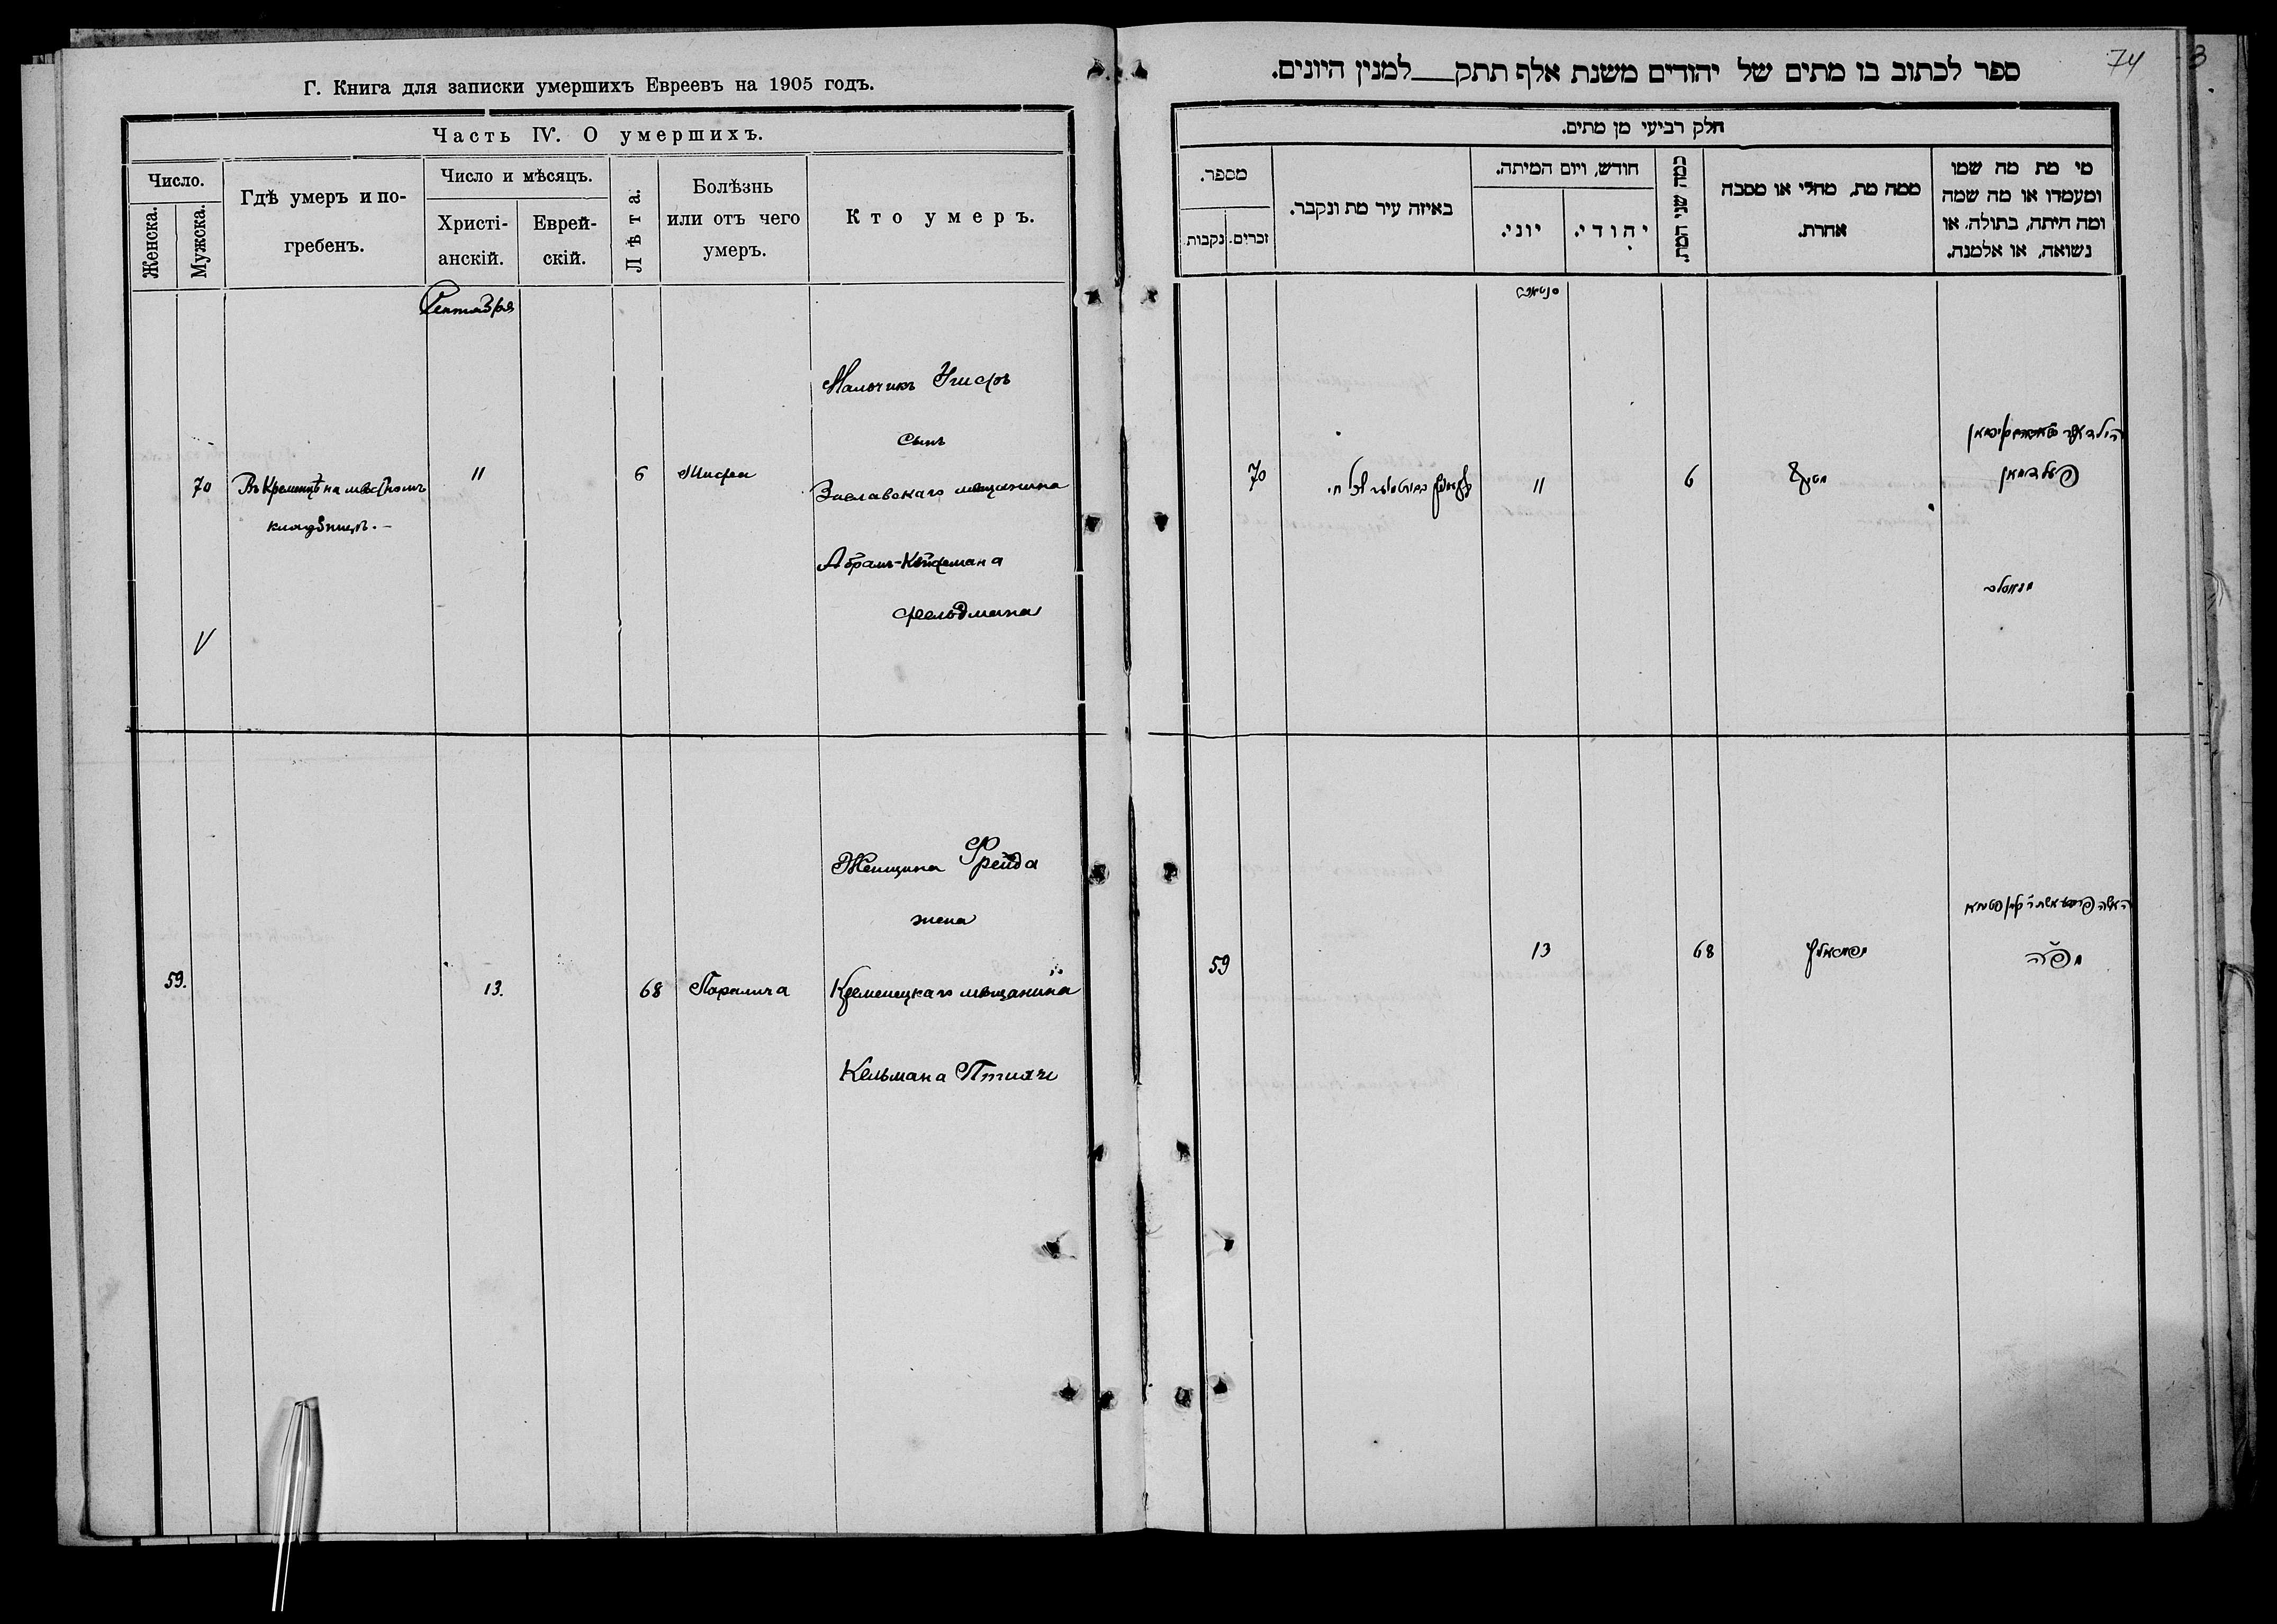 Г. Книга для записки умершихъ Евреевъ на 1905 годъ.
Часть IV. О умершихъ.
Число.
Женска.
Мужска.
Гдѣ умеръ и по-
гребенъ.
Число и мѣсяцъ.
Христі-
анскій.
Еврей-
скій.
Лѣта.
Болѣзнь
или отъ чего
умеръ.
Кто умеръ.
Сентября
70
Въ Кременцѣ на мѣстномъ
кладбищѣ.-
11
6
Тифа
Мальчикъ
сынъ
Заславскаго мѣщанина
Абрамъ-Койфмана
Фельдмана
V
59.
13.
68
Паралича
Женщина Фрейда
жена
Кременецкаго мѣщанина
Кельмана Птиахъ
74
3
ספר לכתוב בו מתים של יהודים משנת אלף תתק למנין היונים.
חלק רביעי מן מתים.
מספר.
נקבות
זכרים.
באיזה עיר מת ונקבר.
חודש, ויום המיתה.
יוני.
יהודי.
כמה שני המת.
ממה מת, מחלי או מסבה
אחרת.
מי מת מה שמו
ומעמדו או מה שמה
ומה היתה, בתולה, או
נשואה, או אלמנה.
70
11
6
פעלדמאן
59
13
68
האשה